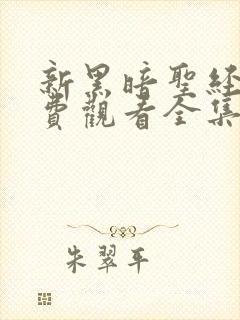 新黑暗聖經
費觀看全集
朱翠平